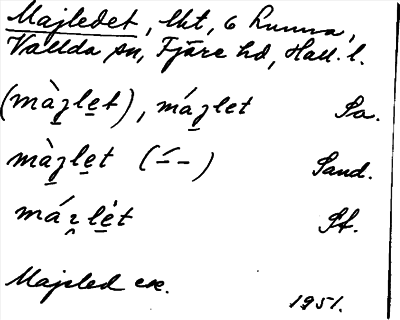 Majledet, lht, 6 hunna,
Vallda sn, Fjäre hd, Hall. l.
(màʒlet), máʒlet Sa.
màʒlet (–́ –) Sand.
máɿlèt St.
Majsled ek.
1951.